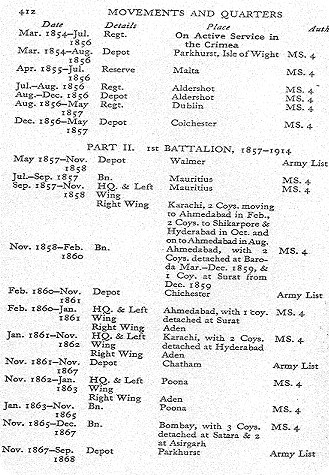 412 MOVEMENTS AND QUARTERS
Date Details Place Auth
Mar. 1854–Jul. 1856 Regt. On Active Service in the Crimea
Mar. 1854–Aug. 1856 Depot Parkhurst, Isle of Wight MS. 4
Apr. 1855–Jul. 1856 Reserve Malta MS. 4
Jul.–Aug. 1856 Regt. Aldershot MS. 4
Aug.–Dec. 1856 Depot Aldershot MS. 4
Aug. 1856–May 1857 Regt. Dublin MS. 4
Dec. 1856–May 1857 Depot Colchester MS. 4
PART II. 1ST BATTALION, 1857–1914
May 1857–Nov. 1858 Depot Walmer Army List
Jul.–Sep. 1857 Bn. Mauritius MS. 4
Sep. 1857–Nov. 1858 HQ. & Left Wing Mauritius MS. 4
Right Wing Karachi, 2 Coys. moving
to Ahmedabad in Feb.,
2 Coys. to Shikarpore &
Hyderabad in Oct. and
on to Ahmedabad in Aug.
Nov. 1858–Feb. 1860 Bn. Ahmedabad, with 2 MS. 4
Coys. detached at Baro-
da Mar.–Dec. 1859, &
1 Coy. at Surat from
Dec. 1859
Feb. 1860–Nov. 1861 Depot Chichester Army List
Feb. 1860–Jan. 1861 HQ. & Left Wing Ahmedabad, with 1 coy. detached at Surat MS. 4
Right Wing Aden
Jan. 1861–Nov. 1862 HQ. & Left Wing Karachi, with 2 Coys. detached at Hyderabad MS. 4
Right Wing Aden
Nov. 1861–Nov. 1867 Depot Chatham Army List
Nov. 1862–Jan. 1863 HQ. & Left Wing Poona MS. 4
Right Wing Aden
Jan. 1863–Nov. 1865 Bn. Poona MS. 4
Nov. 1865–Dec. 1867 Bn. Bombay, with 3 Coys. detached at Satara & 2 at Asirgarh MS. 4
Nov. 1867–Sep. 1868 Depot Parkhurst Army List